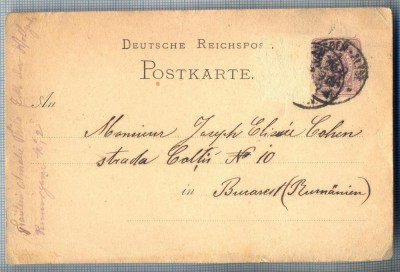 DEUTSCHE REICHSPOST
POSTKARTE.
An
Monsieur Joseph Elisée Cohen
strada Colţii No 10
in Bucarest (Rumänien)